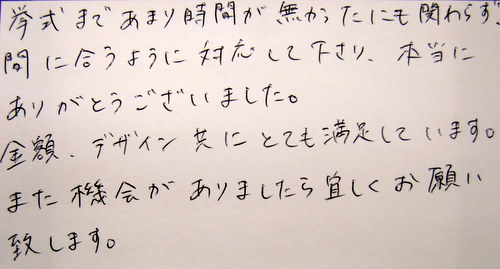 挙式まであまり時間が無かったにも関わらず、
間に合うように対応して下さり、本当に
ありがとうございました。
金額、デザイン共にとても満足しています。
また機会がありましたら宜しくお願い
致します。